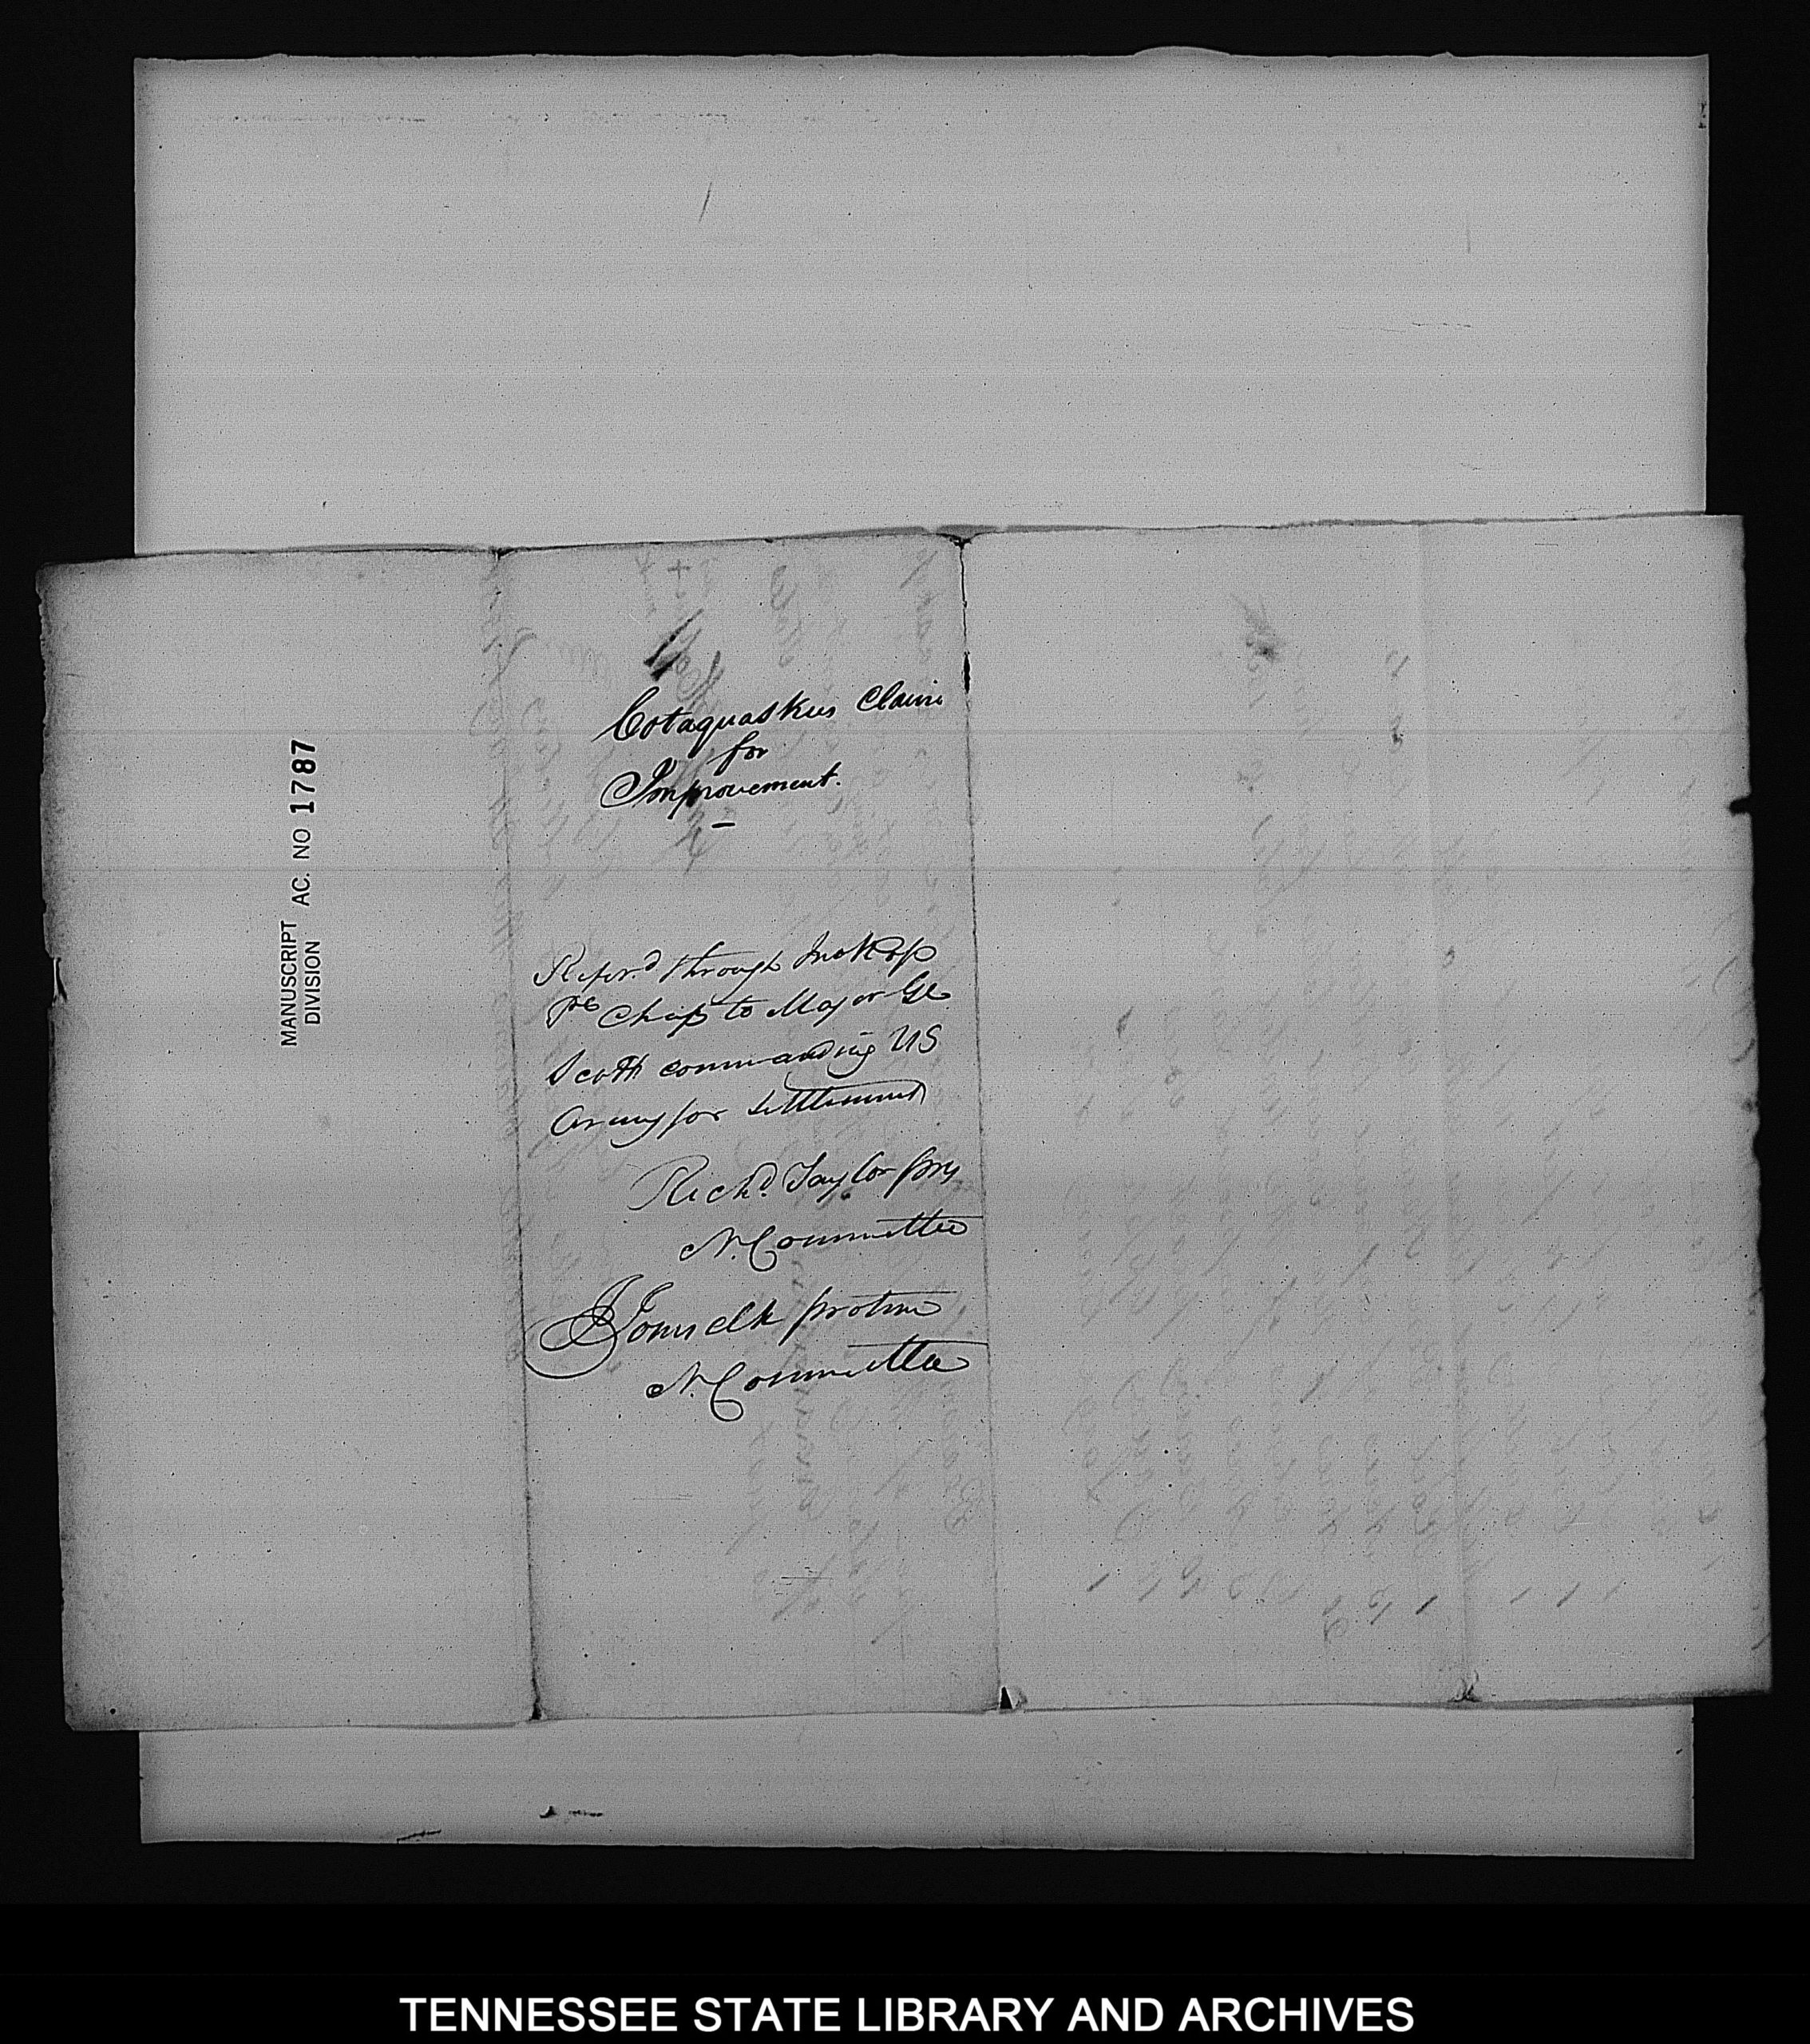 MANUSCRIPT AC. NO 1787
DIVISION
Cotaquaskees Claim
for
Improvement.
Refer.d through Jno Ross
Pl Chief to Major Gl
Scott commanding US
Army for Settlement
Rich.d Taylor pres
N. Committee
Jones clk protem
N. Committee
TENNESSEE STATE LIBRARY AND ARCHIVES